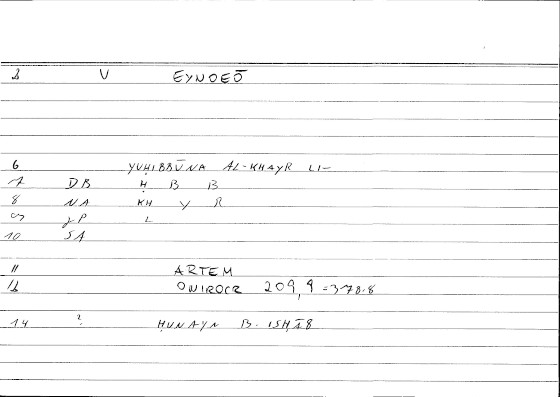 3 V EYNOEŌ
6 YUḤIBBŪNA AL-KHAYR LI-
7 DB Ḥ B B
8 NA KH Y R
9 JP L
10 SA
11 ARTEM
12 ONIROCR 209,9 = 378.8
14 ? ḤUNAYN B. ISḤĀ8